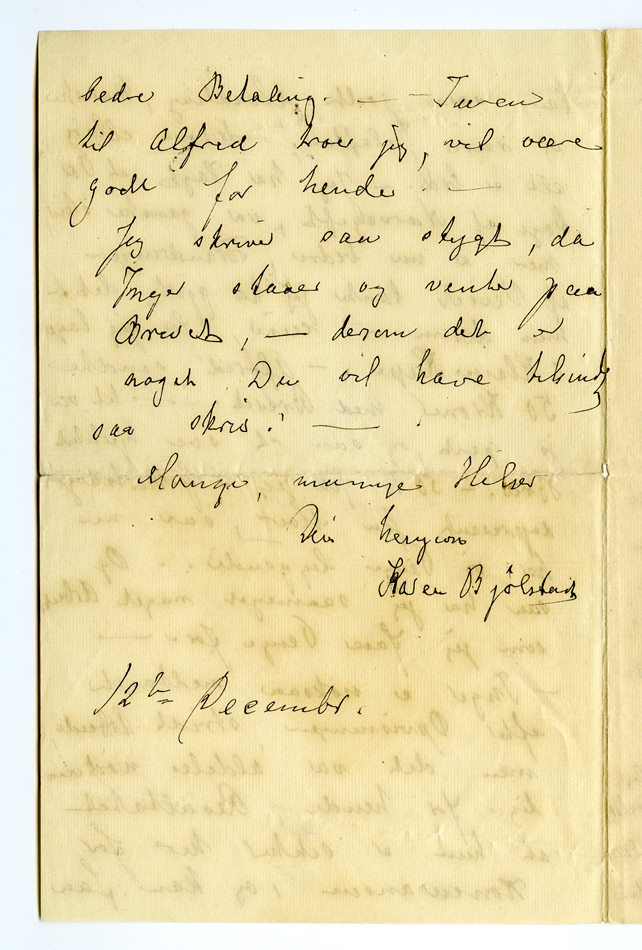 bedre Betaling. — — Turen
til Alfred troer jeg, vil være
godt for hende. —
Jeg skriver saa stygt, da
Inger staaer og venter paa
Brevet, — dersom det er
noget Du vil have tilsendt
saa skriv! —
Mange, mange Hilsner
Din hengivne
Karen Bjølstad
12te December.